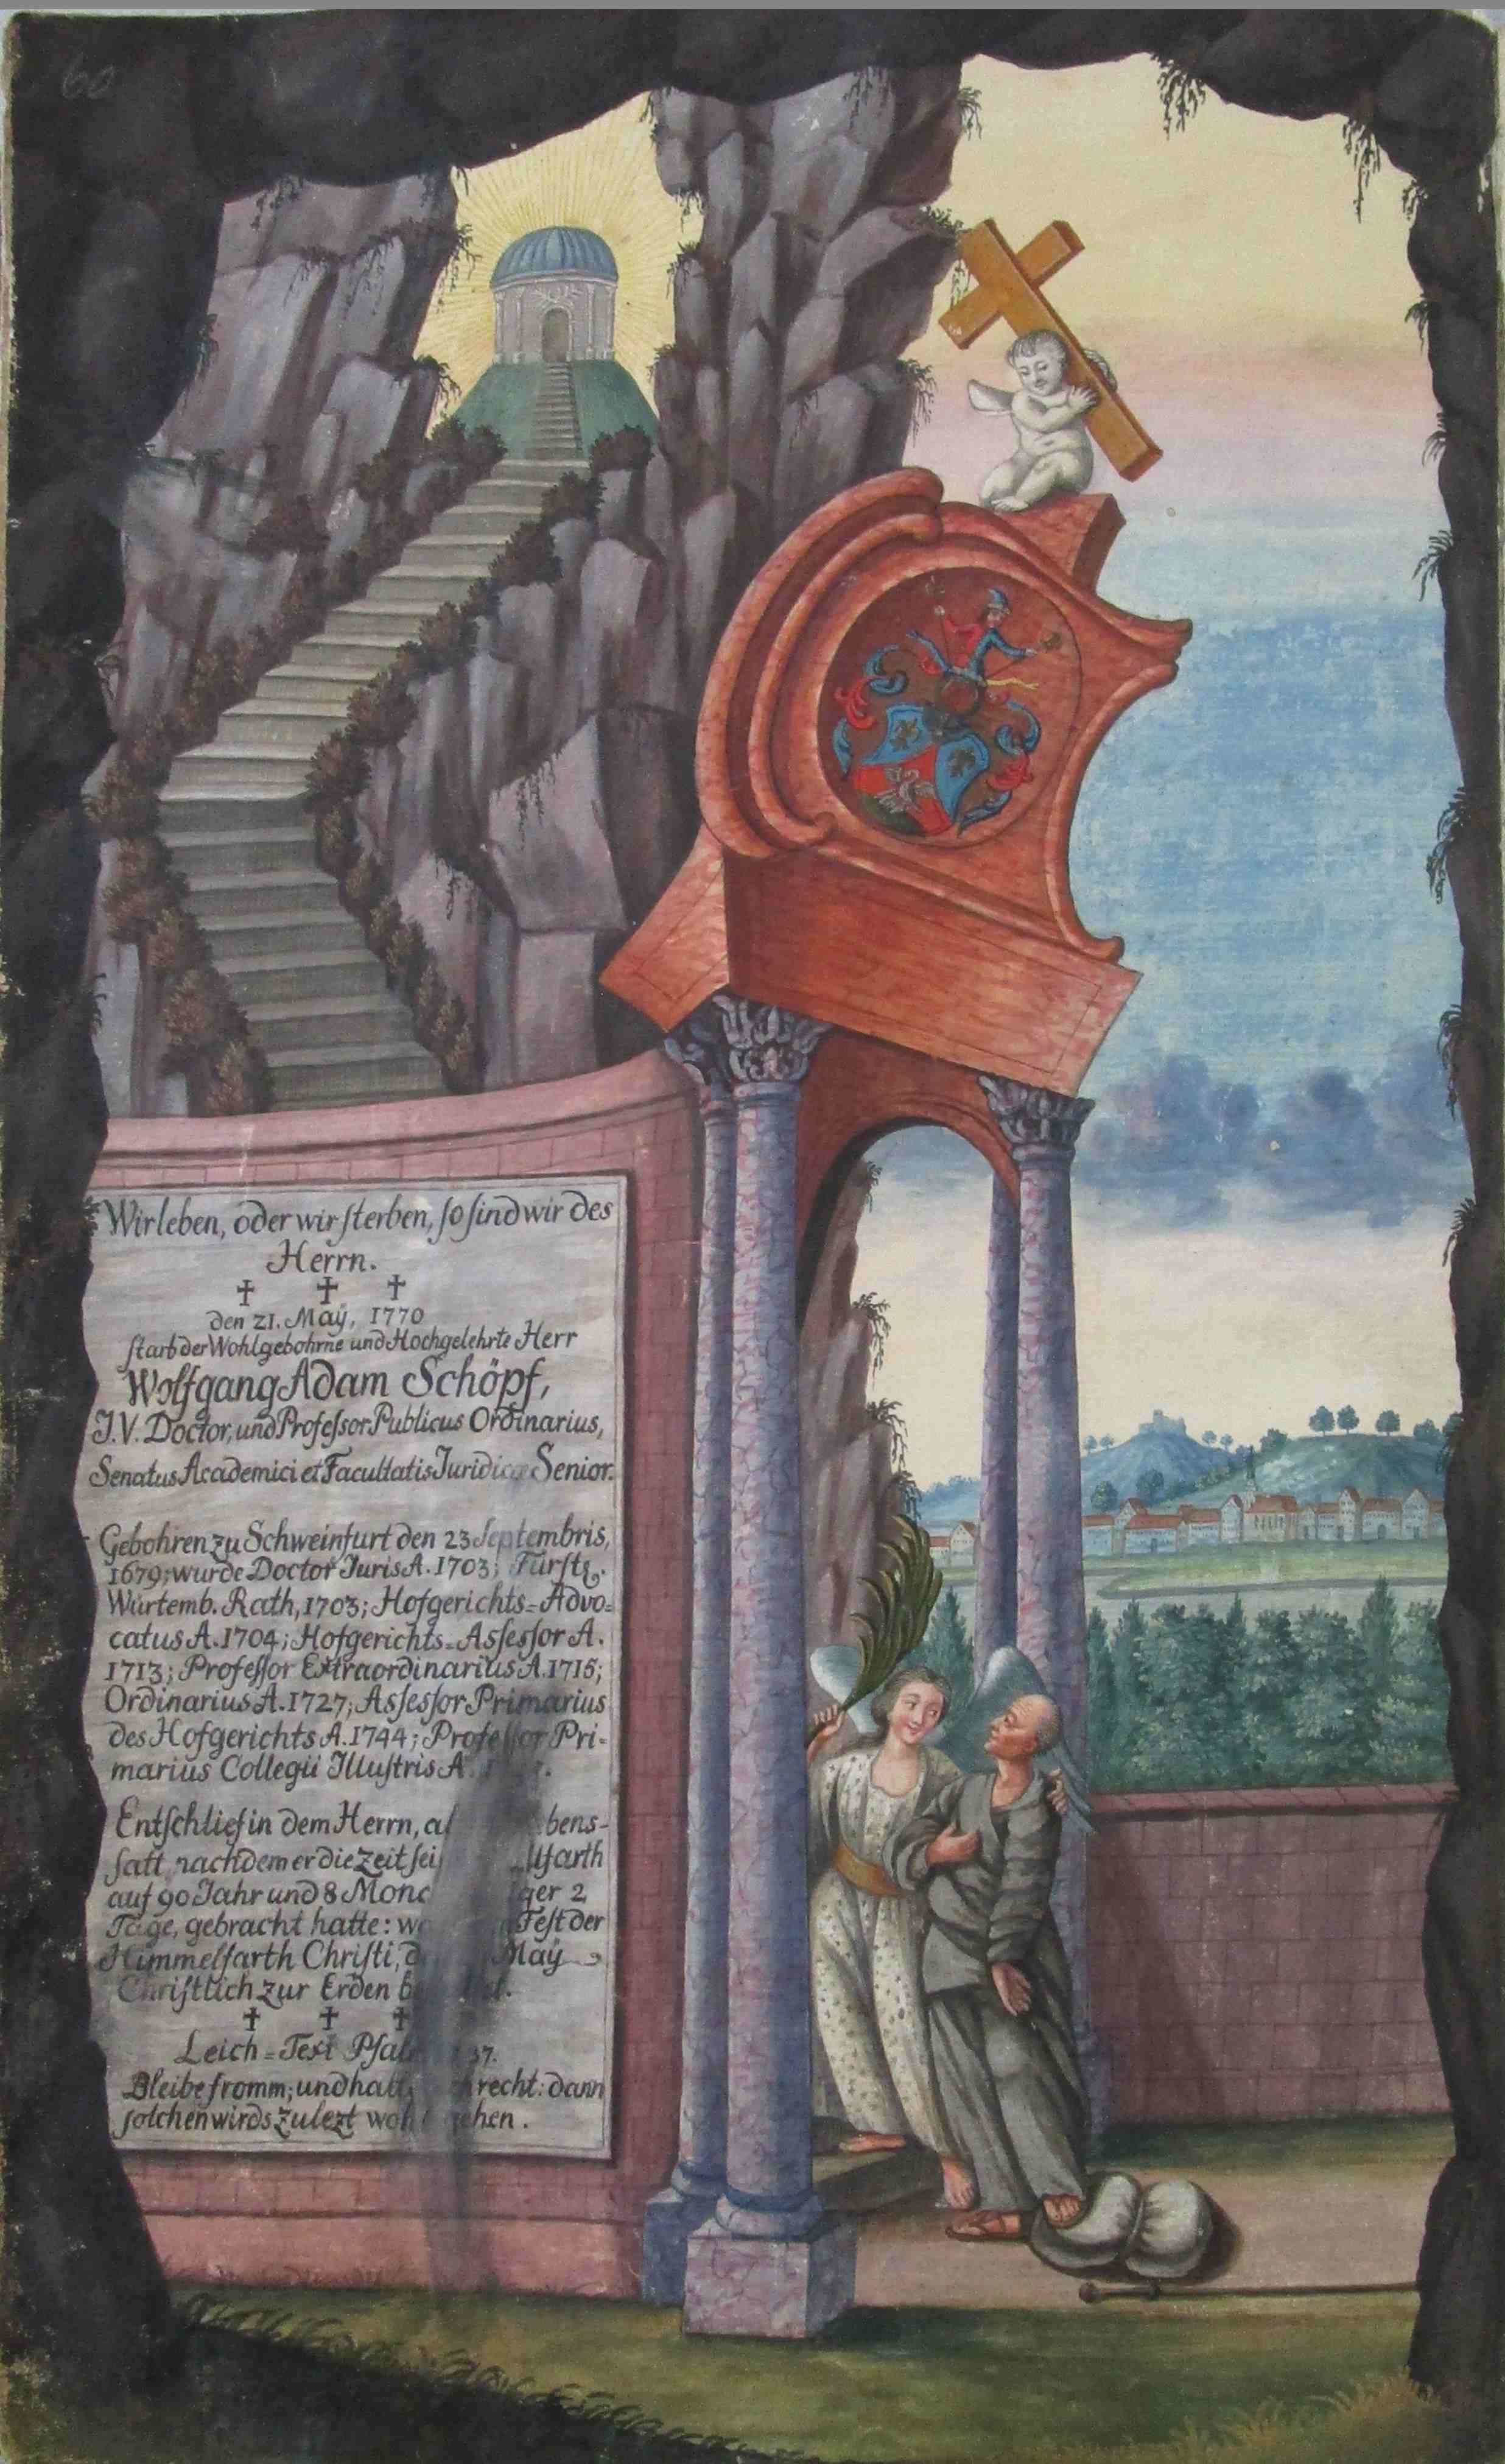 60
Wir leben, oder wir sterben, so sind wir des
Herrn.
den 21. Maÿ, 1770
starb der Wohlgebohrne und Hochgelehrte Herr
Wolfgang Adam Schöpf,
J.V. Doctor, und Professor Publicus Ordinarius,
Senatus Academici et Facultatis Juridicæ Senior.
Gebohren zu Schweinfurt den 23 Septembris,
1679; wurde Doctor Juris A. 1703; Fürstl.
Würtemb. Rath, 1703; Hofgerichts=Advo=
catus A. 1704; Hofgerichts=Assessor A.
1713; Professor Extraordinarius A. 1715;
Ordinarius A. 1727; Assessor Primarius
des Hofgerichts A. 1744; Professor Pri-
marius Collegii Illustris A.
Entschlief in dem Herrn, bens-
satt, nachdem er die Zeit
auf 90 Jahr und 8 2
Tage, gebracht hatte: Fest der
Himmelfarth Christi, Maÿ
Christlich zur Erden
Leich=Text 37.
Bleibe fromm; und recht: dann
solchen wirds zulezt